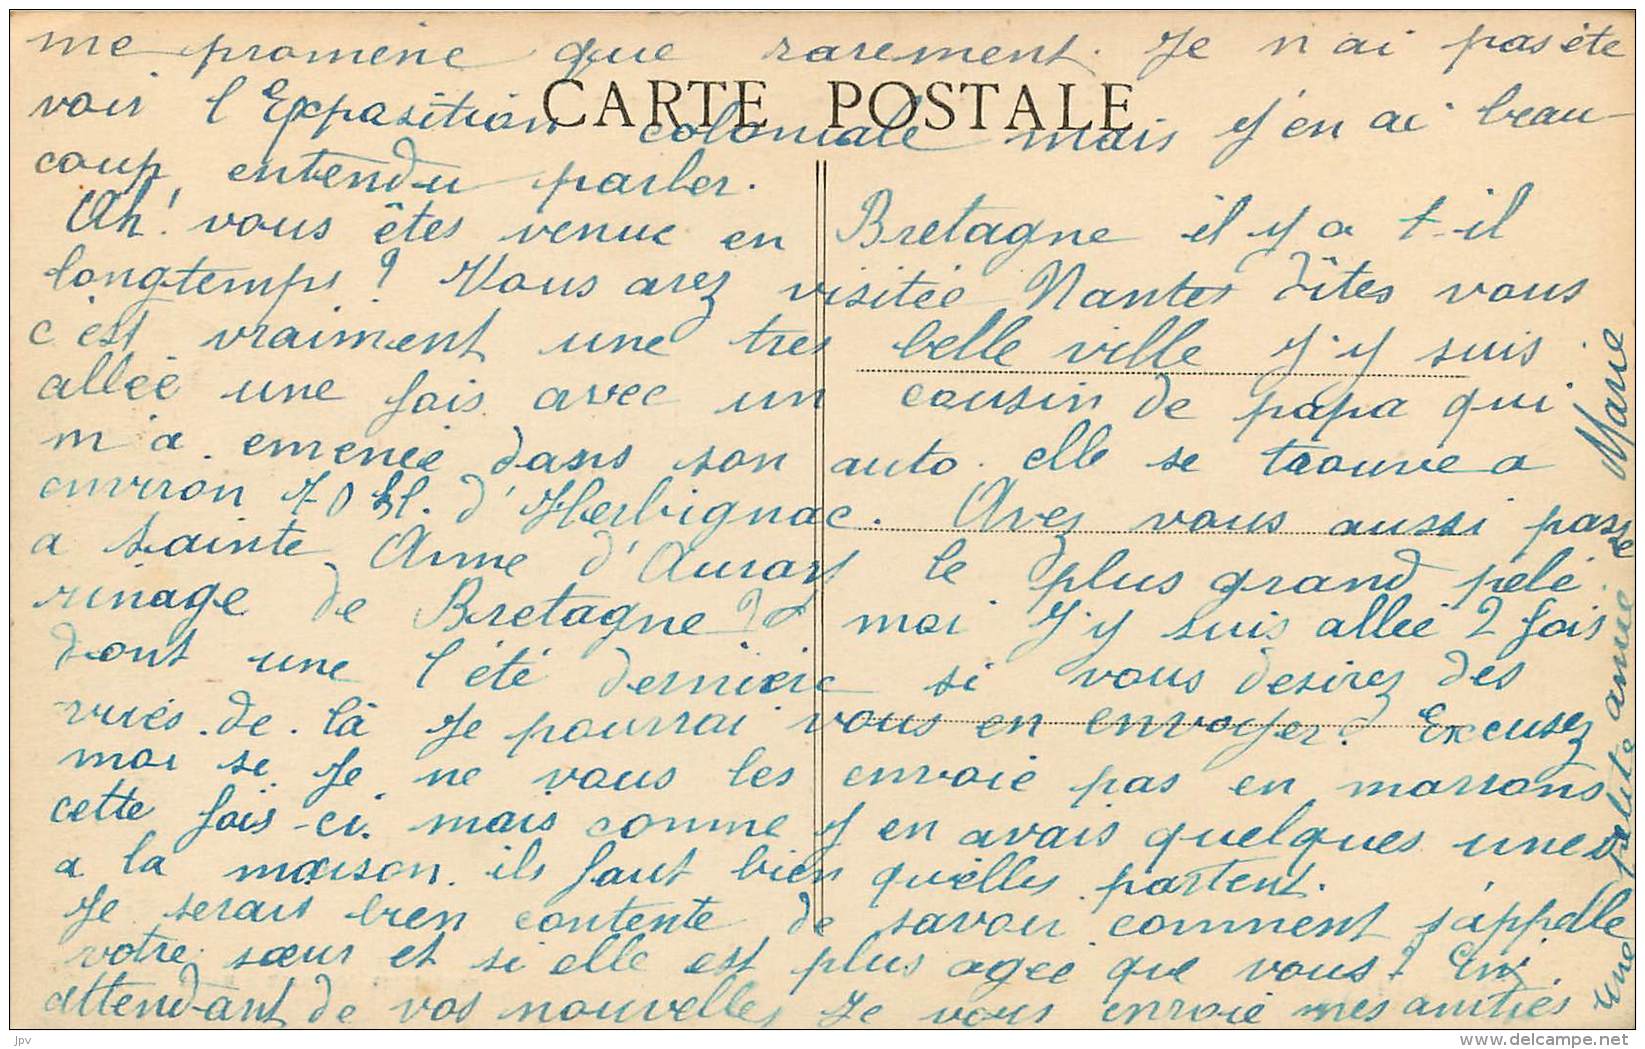 me promène que rarement. Je n'ai pas été
CARTE POSTALE
voir l'Exposition coloniale mais j'en ai beau-
coup entendu parler.
Ah! vous êtes venue en Bretagne il y a t-il
longtemps? Vous avez visitée Nantes dîtes vous
c'est vraiment une tres belle ville j'y suis
allée une fois avec un cousin de papa qui
m'a emenée dans son auto. elle se trouve a
environ 70 Kl. d'Herbignac. Avez vous aussi passé
a Sainte Anne d'Auray le plus grand pélé
rinage de Bretagne? moi j'y suis allée 2 fois
dont une l'été dernière si vous desirez des
vues de là je pourrai vous en envoyer. Excusez
moi si je ne vous les envoie pas en marrons
cette fois-ci. mais comme j'en avais quelques unes
a la maison. ils faut bien qu'elles partent.
Je serais bien contente de savoir comment s'appelle
votre sœur et si elle est plus agée que vous? En
attendant de vos nouvelles je vous envoie mes amitiés
une petite amie Marie
jpv
www.delcampe.net